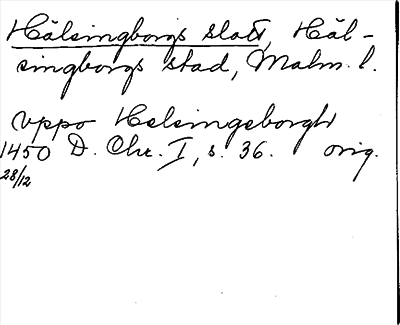 Hälsingborgs slott, Häl-
singborgs stad, Malm. l.
vppo Helsingeborgh
1450 D. Chr. I, s. 36. orig.
28/12